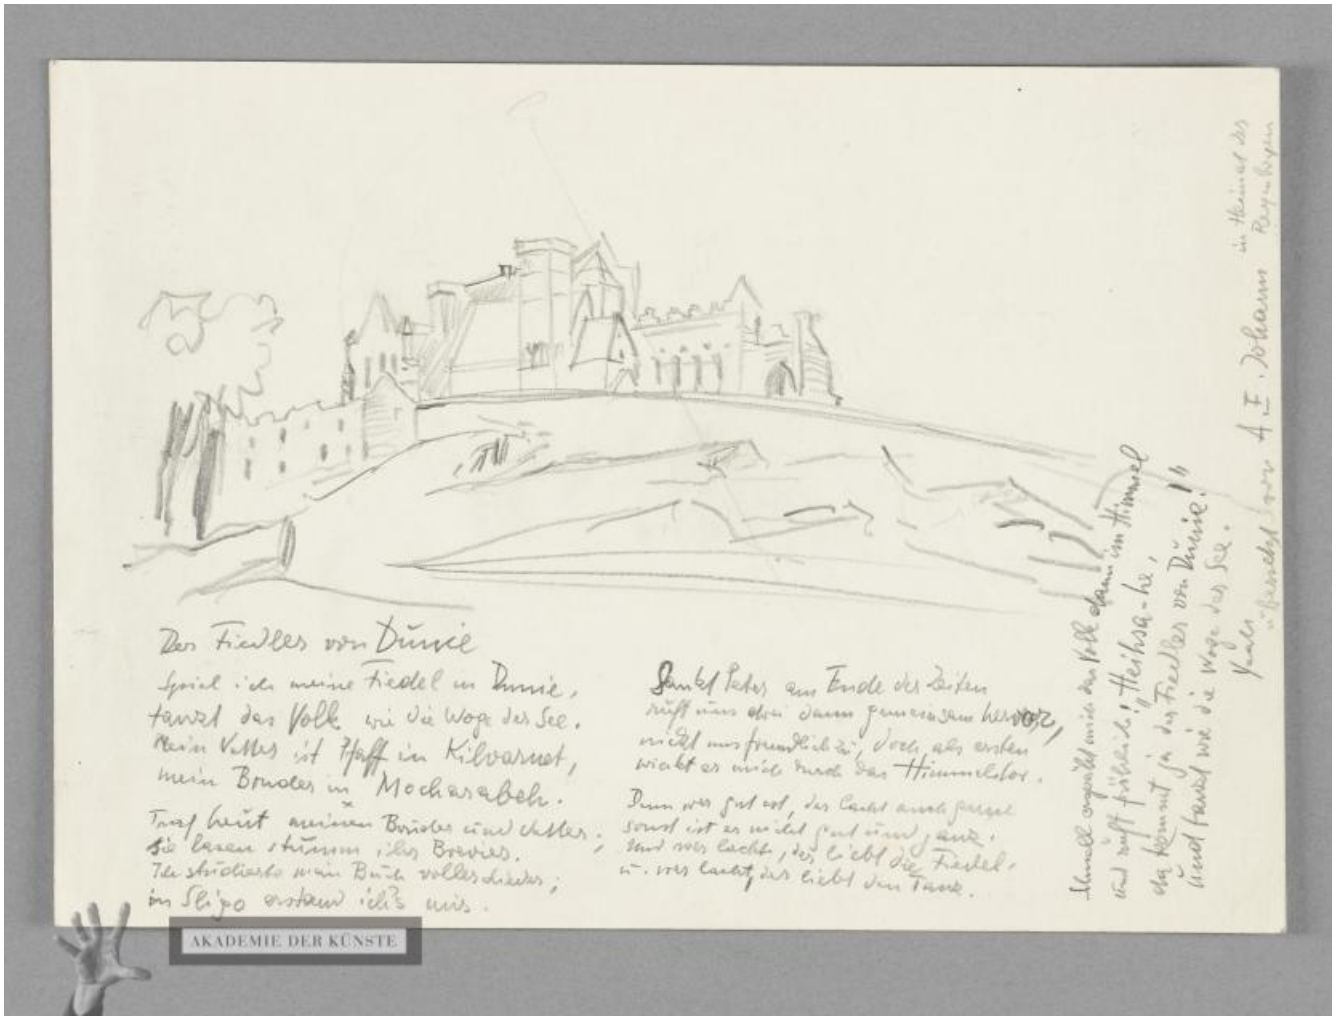 Der Fiedler von Dunie
Spiel ich meine Fiedel in Dunie,
tanzt das Volk wie die Woge der See.
Mein Vetter ist Pfaff in Kilvarnet,
mein Bruder in Mocharabeh.
Traf heut meinen Bruder und Vetter;
sie lasen stumm ihr Brevier.
Ich studierte mein Buch voller Lieder;
in Sligo erstand ich's mir.
Sankt Peter am Ende der Zeiten
ruft uns drei dann gemeinsam hervor,
nickt uns freundlich zu, doch als ersten
winkt er mich durch das Himmelstor.
Denn wer gut ist, der lacht auch
sonst ist er nicht gut und ganz.
Und wer lacht, der liebt die Fiedel,
u. wer lacht, der liebt den Tanz.
Schnell erspäht mich das Volk dann im Himmel
und ruft fröhlich: „Heihsa-he,
da kommt ja der Fiedler von Dunie!"
und tanzt wie die Woge der See.
Yeats
übersetzt von A. E. Johann in Heimat der
Regenbogen
AKADEMIE DER KÜNSTE